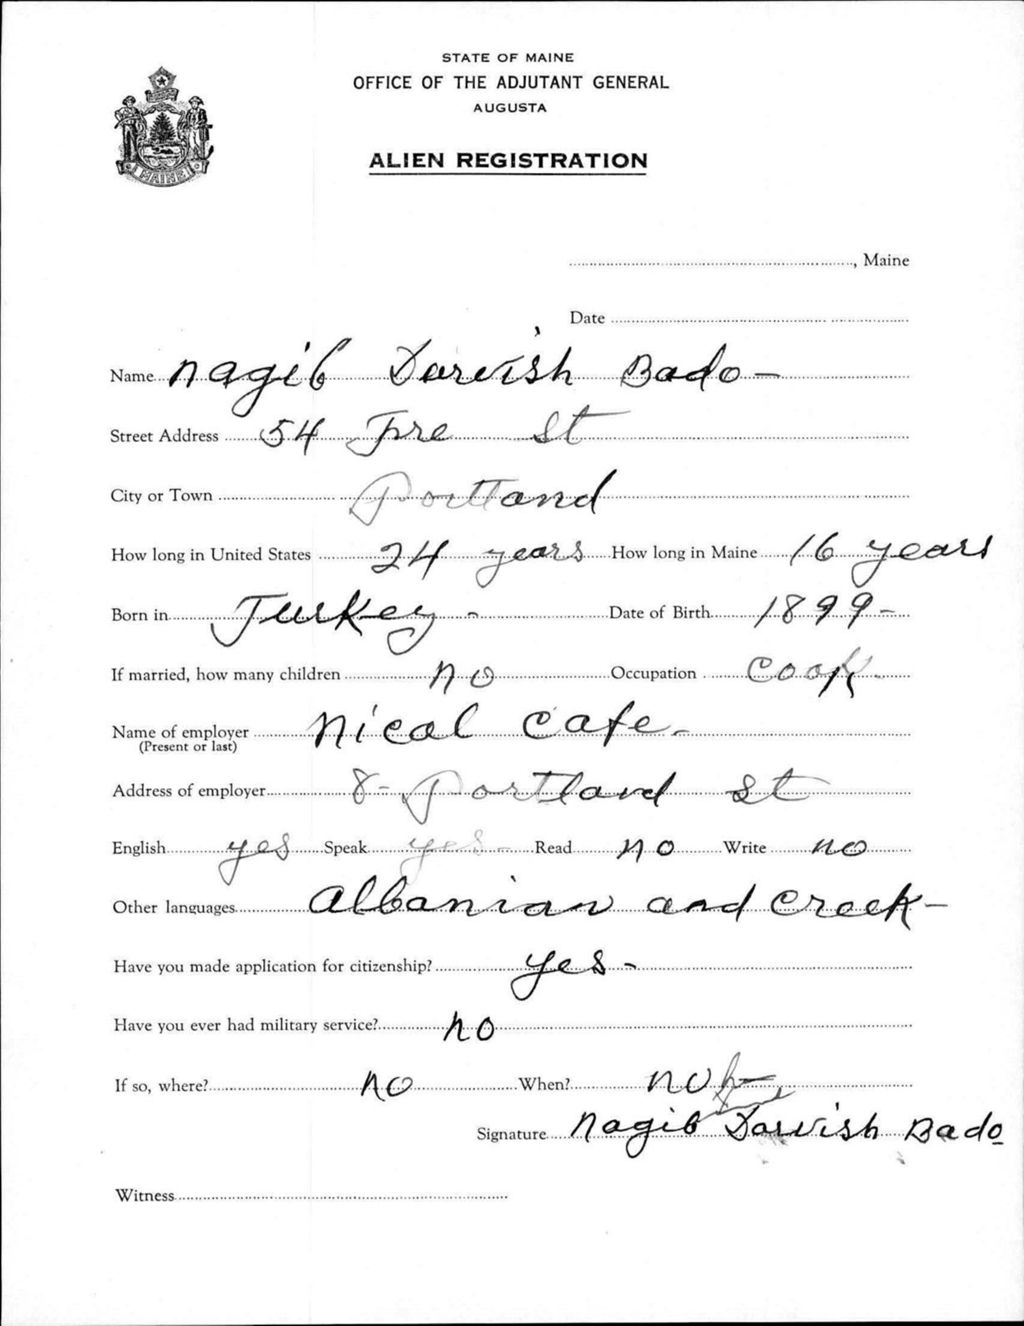 STATE OF MAINE
OFFICE OF THE ADJUTANT GENERAL
AUGUSTA
ALIEN REGISTRATION
, Maine
Date
Name Nagib Darvish Bado -
Street Address 54 Fre St
City or Town Portland
How long in United States 24 years How long in Maine 16 years
Born in Turkey - Date of Birth 1899 -
If married, how many children no Occupation cook -
Name of employer Nical Cafe -
(Present or last)
Address of employer 8 - Portland St
English yes Speak yes - Read no Write no
Other languages Albanian and Creek -
Have you made application for citizenship? yes -
Have you ever had military service? no
If so, where? no When? no
Signature Nagib Darvish Bado
Witness
MAINE